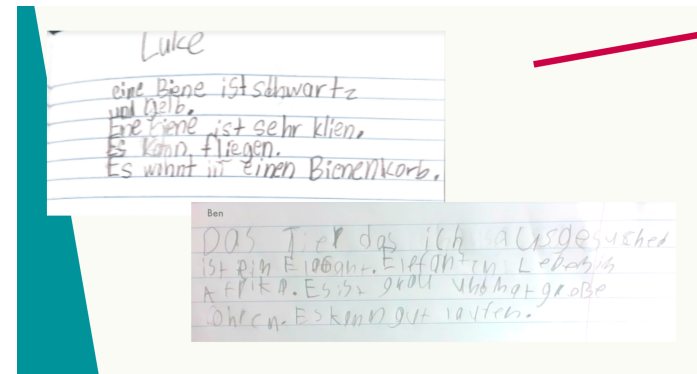 Luke
eine Biene ist schwartz
und gelb.
Ene Biene ist sehr klien.
Es kann fliegen.
Es wohnt in einen Bienenkorb.
Ben
DAS Tier das ich ausgesuched
ist ein Elefant. Elefanten Leben in
Afrika. Es ist grau und hat große
Ohren. Es kann gut laufen.